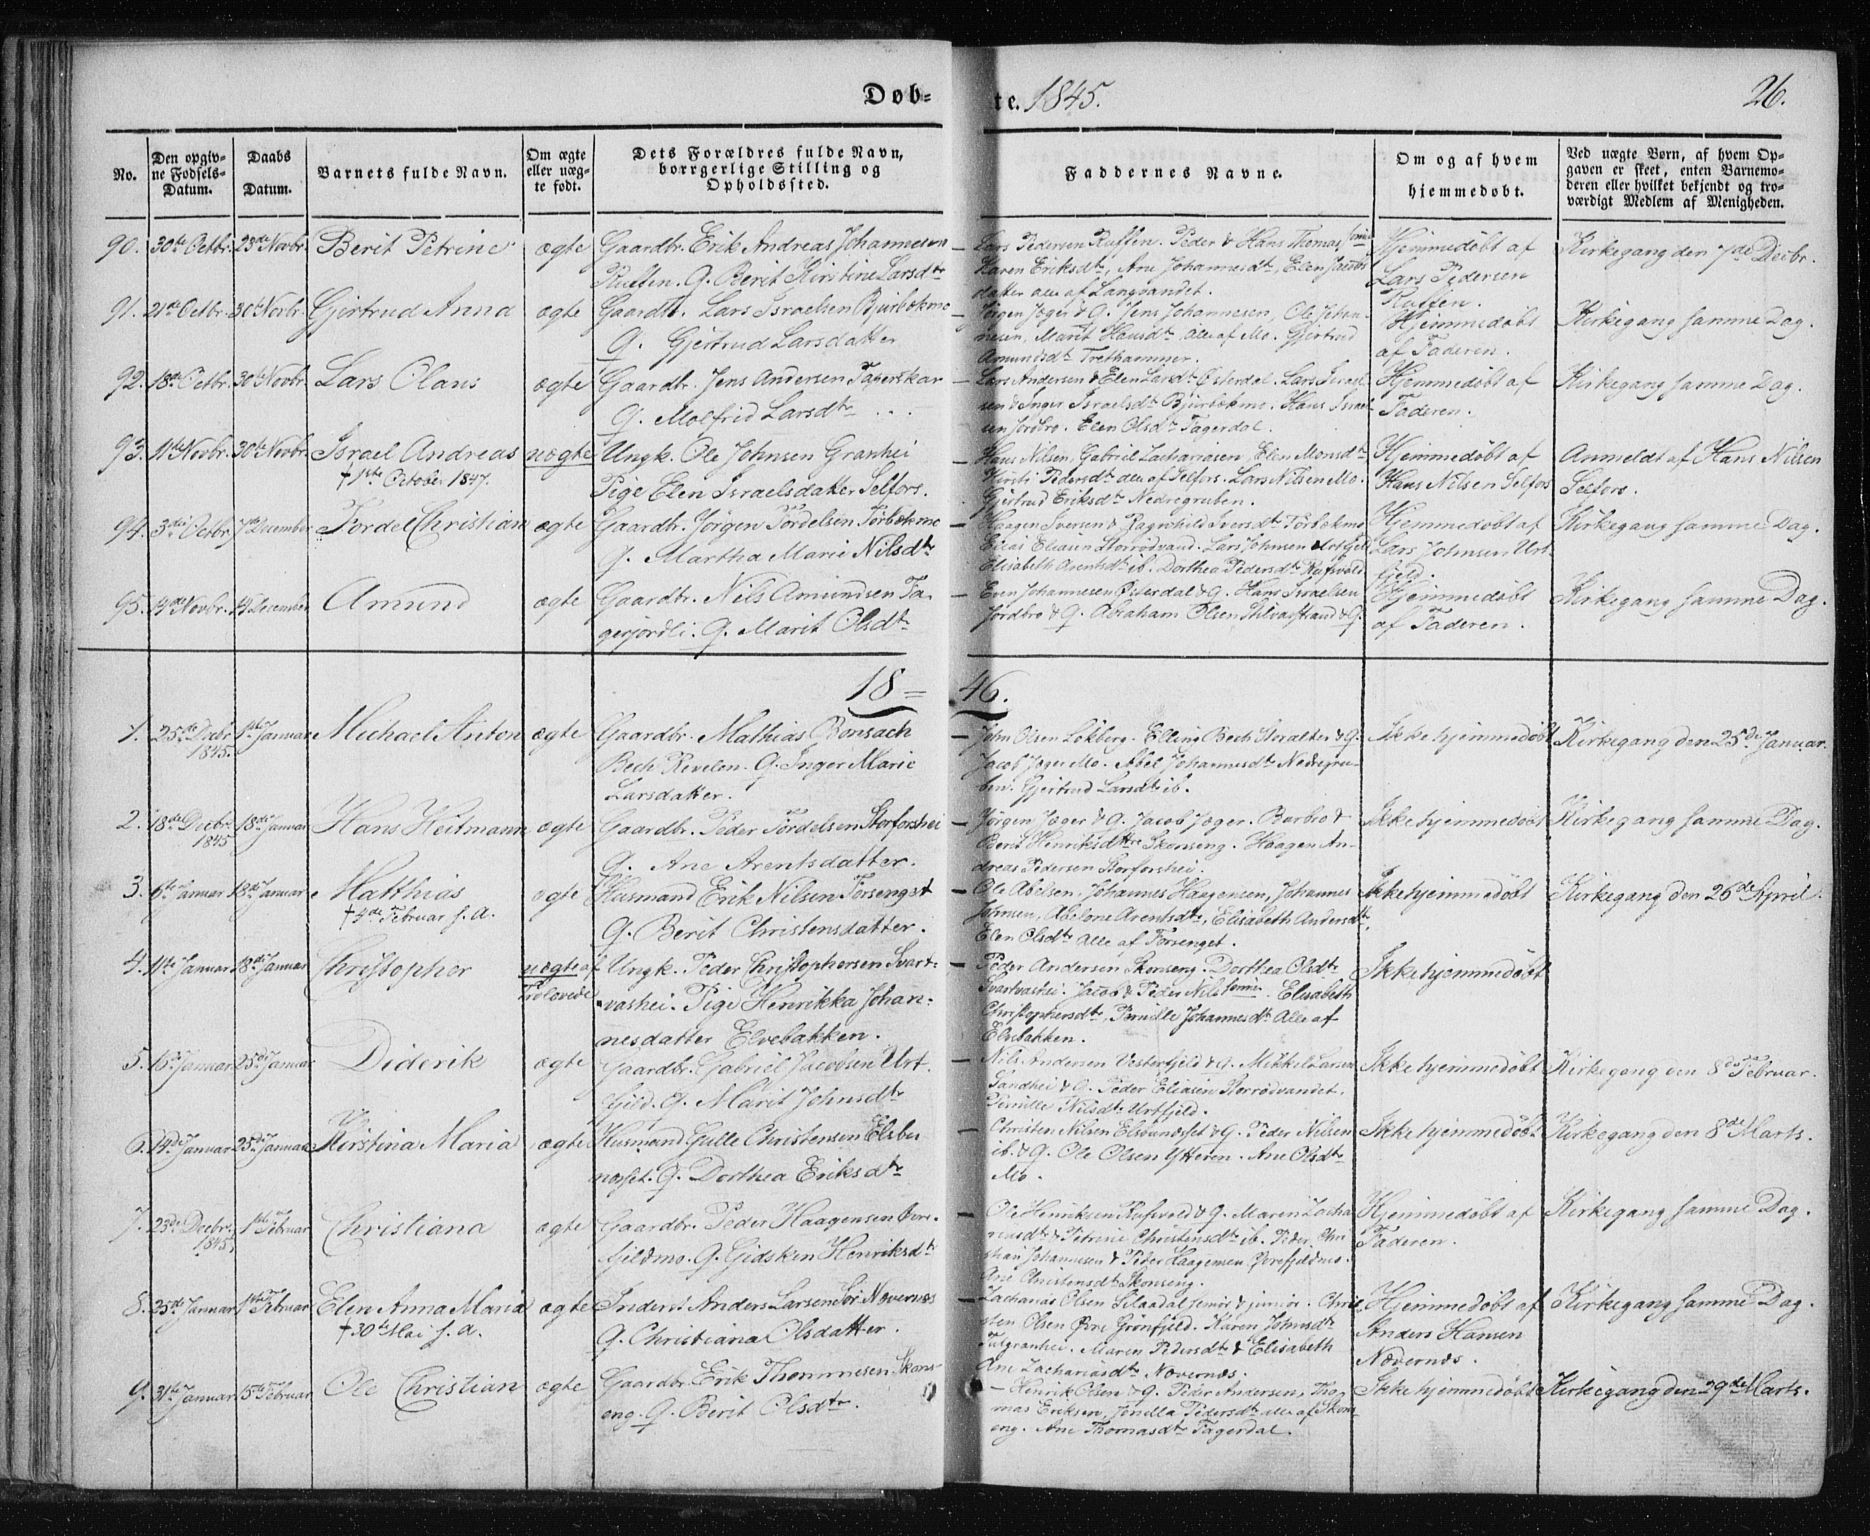 Døb-
te. 1845.
26.
No.
Den opgiv-
ne Fødsels-
Datum.
Daabs
Datum.
Barnets fulde Navn.
Om ægte
eller uæg-
te født.
Dets Forældres fulde Navn,
borrgerlige Stilling og
Opholdssted.
Faddernes Navne.
Om og af hvem
hjemmedøbt.
Ved uægte Børn, af hvem Op-
gaven er skeet, enten Barnemo-
deren eller hvilket bekjendt og tro-
værdigt Medlem af Menigheden.
90. 30te Octbr. 23de Novbr. Berit Petrine ægte Gaardbr. Erik Andreas Johannesen
Ruffen. Q. Berit Kirstine Larsdtr
— Lars Pedersen Ruffen. Peder & Hans Thomas sønner
Karen Eriksdtr, Ane Johannesdtr, Elen Jacobs
datter alle af Langvandet.
Hjemmedøbt af
Lars Pedersen
Ruffen.
Kirkegang den 7de Decbr.
91. 21de Octbr. 30te Novbr. Gjertrud Anna ægte Gaardbr. Lars Israelsen Bjurbækmo
Q. Gjertrud Larsdatter
— Jørgen Jæger & Q. Jens Johannesen, Ole Johan-
nesen, Marit Hansdtr, alle af Mo. Gjertrud
Amundsdtr Trethammer.
Hjemmedøbt
af Faderen.
Kirkegang samme Dag.
92. 18de Octbr. 30te Novbr. Lars Olaus ægte Gaardbr. Jens Andersen Fagerskar
Q. Molfrid Larsdtr
— Lars Andersen & Elen Larsdtr Østerdal. Lars Israel-
sen & Inger Israelsdtr Bjurbækmo. Hans Israel-
sen Jordbro. Elen Olsdtr Fagerdal.
Hjemmedøbt af
Faderen.
Kirkegang samme Dag.
93. 11te Novbr. 30te Novbr. Israel Andreas uægte Ungk. Ole Johnsen Granhei
† 1ste October 1847.
Pige Elen Israelsdatter Selfors.
— Hans Nilsen, Gabriel Zachariasen, Elen Monsdtr
Kirsti Pedersdtr alle af Selfors. Lars Nilsen Mo.
Gjertrud Eriksdtr Nedregruben.
Hjemmedøbt af
Hans Nilsen Selfors
Anmeldt af Hans Nilsen
Selfors.
94. 3die Octbr. 7de December Tordel Christian ægte Gaardbr. Jørgen Tordelsen Tørbækmo
Q. Martha Marie Nilsdtr
— Haagen Iversen & Ragnhild Iversdtr Tørbækmo
Elias Eliasen Storrødvand. Lars Johnsen Urtfjeld
Elisabeth Arentsdtr ib. Dorthea Pedersdtr Rufsvold
Hjemmedøbt af
Lars Johnsen Urt-
fjeld.
Kirkegang samme Dag.
95. 14de Novbr. 14 December Amund ægte Gaardbr. Nils Amundsen Fa-
gerjordli. Q. Marit Olsdtr
— Even Johannesen Østerdal & Q. Hans Israelsen
Jordbro & Q. Abraham Olsen & Q.
Hjemmedøbt
af Faderen.
Kirkegang samme Dag.
18=46.
1. 25de Decbr 1845. 1ste Januar Michael Anton ægte Gaardbr. Mathias Bonsach
Bech Revelen. Q. Inger Marie
Larsdatter.
— John Olsen Løkberg. Elling Bech & Q.
Jacob Jæger Mo. Abel Johannesdtr Nedregru-
ben. Gjertrud Larsdtr ib.
Ikke hjemmedøbt
Kirkegang den 25de Januar.
2. 18de Decbr 1845 18de Januar Hans Heitmann ægte Gaardbr. Peder Tordelsen Storforshei
Q. Ane Arentsdatter.
— Jørgen Jæger & Q. Jacob Jæger. Barbro &
Berit Henriksdøttre Skonseng. Haagen An-
dreas Pedersen Storforshei.
Ikke hjemmedøbt
Kirkegang samme Dag.
3. 6te Januar 18de Januar Matthias ægte Husmand Erik Nilsen Forsenget
† 4de Februar s. a.
Q. Berit Christensdatter.
— Ole Abelsen, Johannes Haagensen, Johannes
Johnsen, Abelone Arentsdtr, Elisabeth Andersdtr,
Elen Olsdtr alle af Forsenget.
Ikke hjemmedøbt
Kirkegang den 26de April.
4. 11te Januar 18de Januar Christopher uægte af
Trolovede
Ungk. Peder Christophersen Svart-
vashei. Pige Henrikka Johan-
nesdatter Elvebakken.
— Peder Andersen Skonseng. Dorthea Olsdtr
Svartvashei. Jacob & Peder Nilssønner. Elisabeth
Christophersdtr, Pernille Johannesdtr Alle af
Elvebakken.
Ikke hjemmedøbt
5. 16de Januar 25de Januar Diderik ægte Gaardbr. Gabriel Jacobsen Urt-
fjeld. Q. Marit Johnsdtr
— Nils Andersen Vesterfjeld & Q. Mikkel Larsen
Sandhei & Q. Peder Eliasen Storrødvandet.
Pernille Nilsdtr Urtfjeld.
Ikke hjemmedøbt
Kirkegang den 8de Februar.
6. 14de Januar 25de Januar Kirstina Maria ægte Husmand Gulle Christensen Elsbu-
næsset. Q. Dorthea Eriksdtr
— Christen Nilsen Elsbunæsset & Q. Peder Nilsen
ib. & Q. Ole Olsen Ytteren. Ane Olsdtr
Mo.
Ikke hjemmedøbt
Kirkegang den 8de Marts.
7. 23de Decbr 1845. 1ste Februar Christiana ægte Gaardbr. Peder Haagensen Øvre-
fjeldmo. Q. Gidsken Henriksdtr
— Ole Henriksen Rufsvold & Q. Maren Zacha-
riasdtr & Petrine Christensdtr ib. Peder, Chri-
stian Johannesen & Peder Haagensen Øvrefjeldmo.
Ane Christensdtr Skonseng.
Hjemmedøbt af
Faderen.
Kirkegang samme Dag.
8. 25de Januar 1ste Februar Elen Anna Maria ægte Inderst Anders Larsen Sør Nævernæs
† 30te Mai s. a.
Q. Christiana Olsdatter.
— Zacharias Olsen senior & junior. Chri-
sten Olsen Øvre Grønfjeld. Karen Johnsdtr
Tulgranhei. Maren Pedersdtr & Elisabeth
Ane Zachariasdtr Nævernæs.
Hjemmedøbt af
Anders Hansen
Nævernæs.
Kirkegang samme Dag.
9. 31te Januar 15de Februar Ole Christian ægte Gaardbr. Erik Thommesen Skons-
eng. Q. Berit Olsdtr.
— Henrik Olsen & Q. Peder Andersen, Tho-
mas Eriksen, Pedersdtr alle af Skons-
eng. Ane Thomasdtr Fagerdal.
Ikke hjemmedøbt
Kirkegang den 29de Marts.